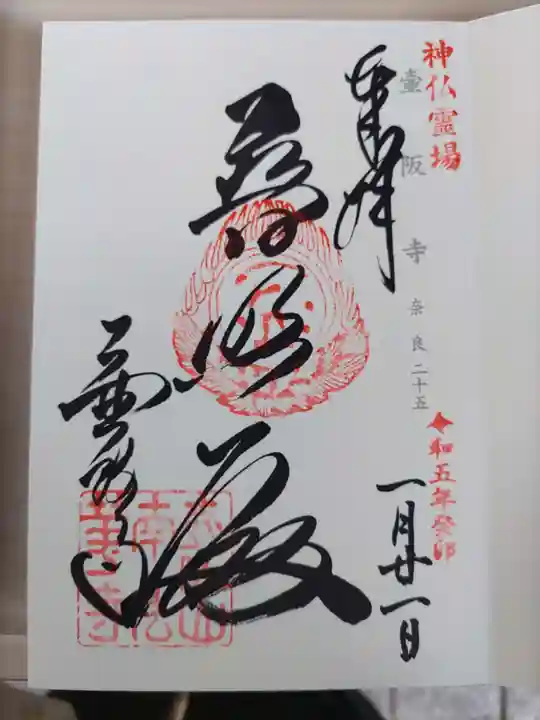 神仏霊場
壷阪寺 奈良二十五
令和五年癸卯
一月廿一日
奉拝
普照殿
壷阪寺